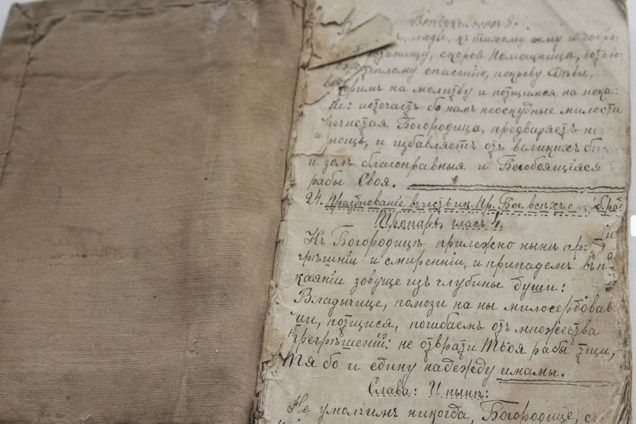 Кондакъ, гласъ
людіе, къ тихому сему и добро
пристанищу, скорой Помощницѣ, готово
теплому спасенію, покрову Дѣвы,
ускоримъ на молитву и потщимся на пока-
: источаетъ бо намъ неоскудные милости
Пречистая Богородица, предваряетъ на
помощь, и избавляетъ отъ великихъ бѣдъ
и золъ благонравныя и Богобоящіяся
рабы Своя.
24. Празднованіе въ честь ик. Пр. Бог. всѣхъ
Тропарь, гласъ 4.
Къ Богородицѣ прилежно нынѣ
грѣшніи и смиренніи, и припадемъ въ п
каяніи зовуще изъ глубины души:
Владычице, помози на ны милосердовав
ши, потщися, погибаемъ отъ множества
прегрѣшеній: не отврати Твоя рабы тщи,
Тя бо и едину надежду имамы.
Слава: И нынѣ:
Не умолчимъ никогда, Богородице,